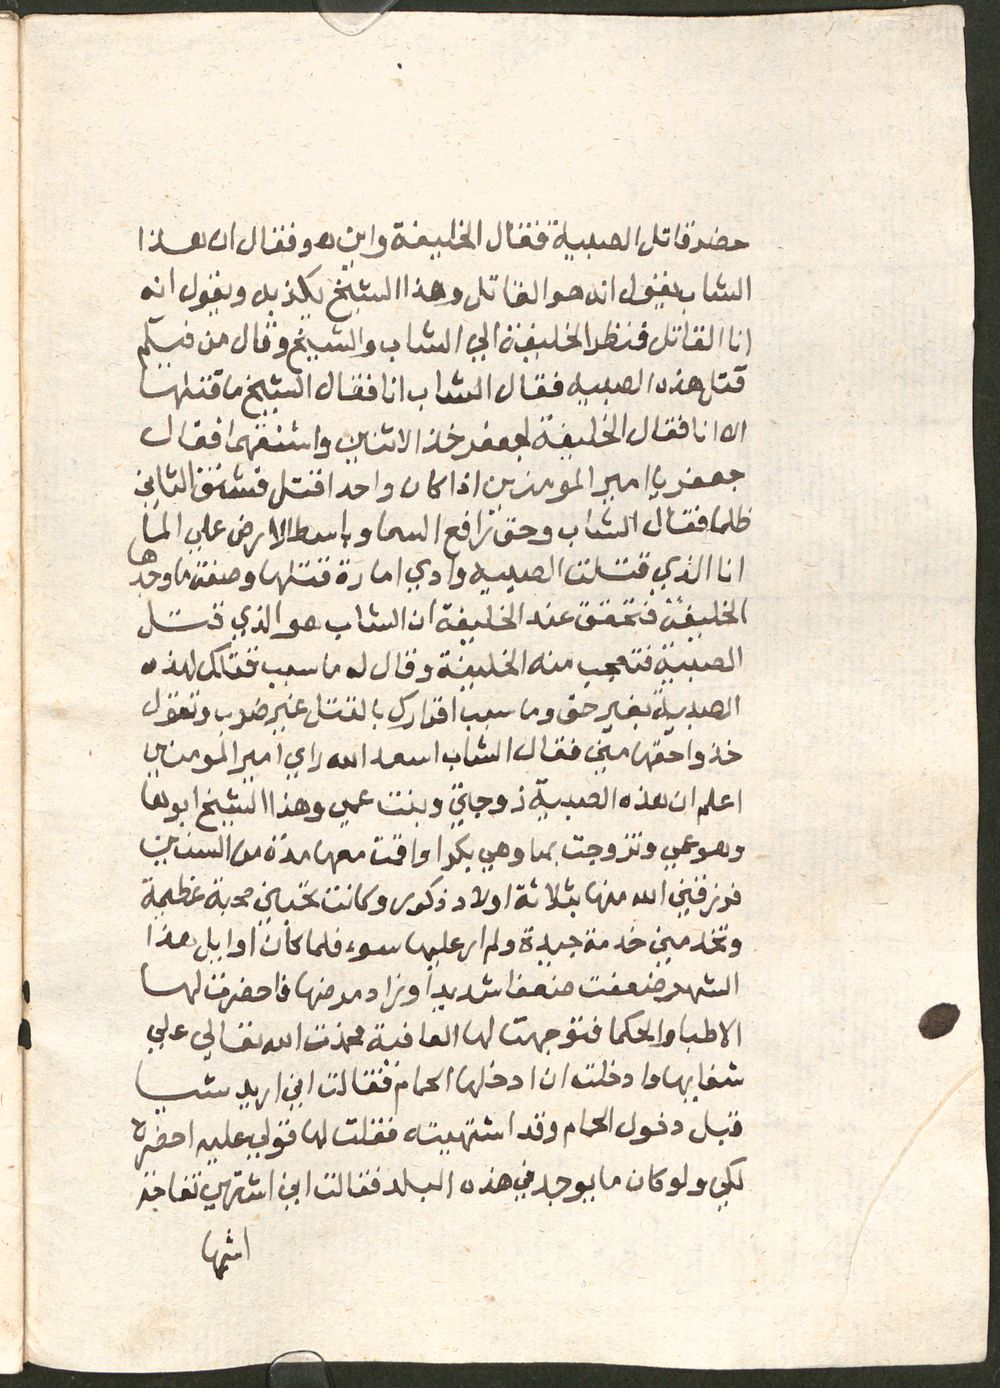 حضر قاتل الصبية فقال الخليفة واين هو فقال ان هذا
الشاب يقول انه هو القاتل وهذا الشيخ يكذبه ويقول انه
انا القاتل فنظر الخليفة الي الشاب والشيخ وقال من فيكم
قتل هذه الصبيه فقال الشاب انا فقال الشيخ ما قتلها
الا انا فقال الخليفة لجعفر خذ الاثنين واشنقهما فقال
جعفر يا امير المومنين اذا كان واحد اقتل فشنق الثاني
ظلما فقال الشاب وحق رافع السما وباسط الارض علي الما
انا الذي قتلت الصبيه وادي امارة قتلها وصفة ما وجدها
الخليفة فتحقق عند الخليفة ان الشاب هو الذي قتل
الصبية فتعجب منه الخليفة وقال له ما سبب قتلك لهذه
الصبية بغير حق وما سبب اقرارك بالقتل غير ضرب وتقول
خذوا حقها مني فقال الشاب اسعد الله راي امير المومنين
اعلم ان هذه الصبية زوجتي وبنت عمي وهذا الشيخ ابوها
وهو عمي وتزوجت بها وهي بكرا واقت معها مدة من السنين
فرزقني الله منها بثلاثة اولاد ذكور وكانت تحبني محبة عظيمة
وتخدمني خدمة جيدة ولم ار عليها سوء فلما كان اوايل هذا
الشهر ضعفت ضعفا شديدا وزاد مرضها فاحضرت لها
الاطبا والحكما فتوجهت لها العافية فحمدت الله تعالي علي
شفايها وادخلت ان ادخلها الحمام فقالت اني اريد شيا
قبل دخول الحمام وقد اشتهيته فقلت لها قولي عليه احضره
لكي ولو كان ما يوجد في هذه البلد فقالت اني اشتهي تفاحة
اشمها